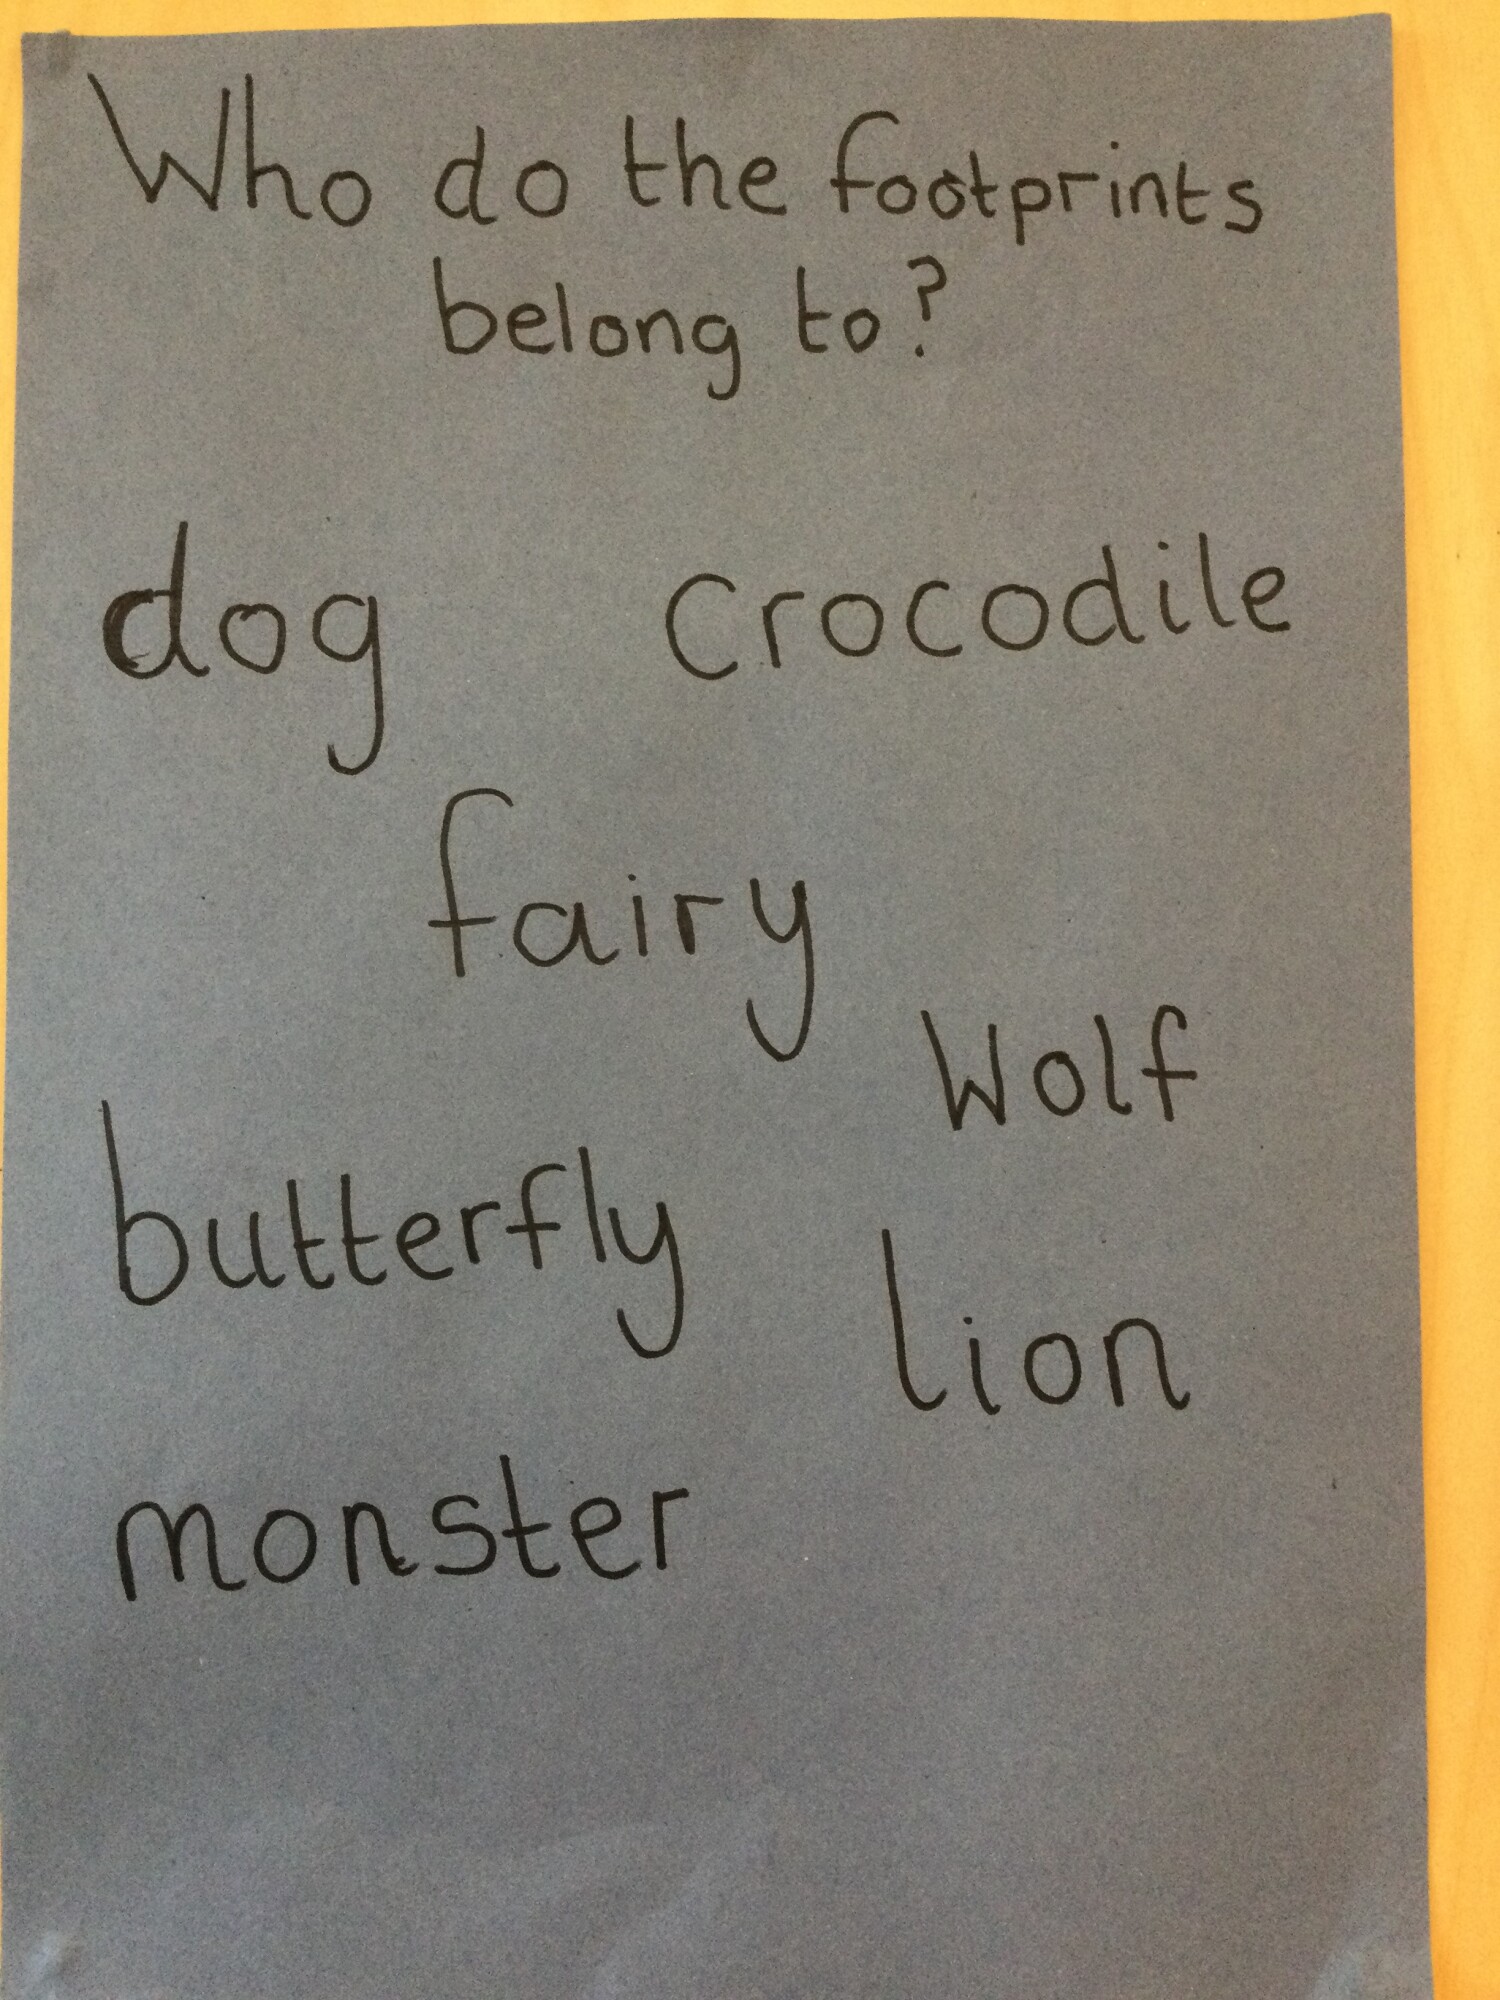 Who do the footprints
belong to?
dog crocodile
fairy
Wolf
butterfly
lion
monster